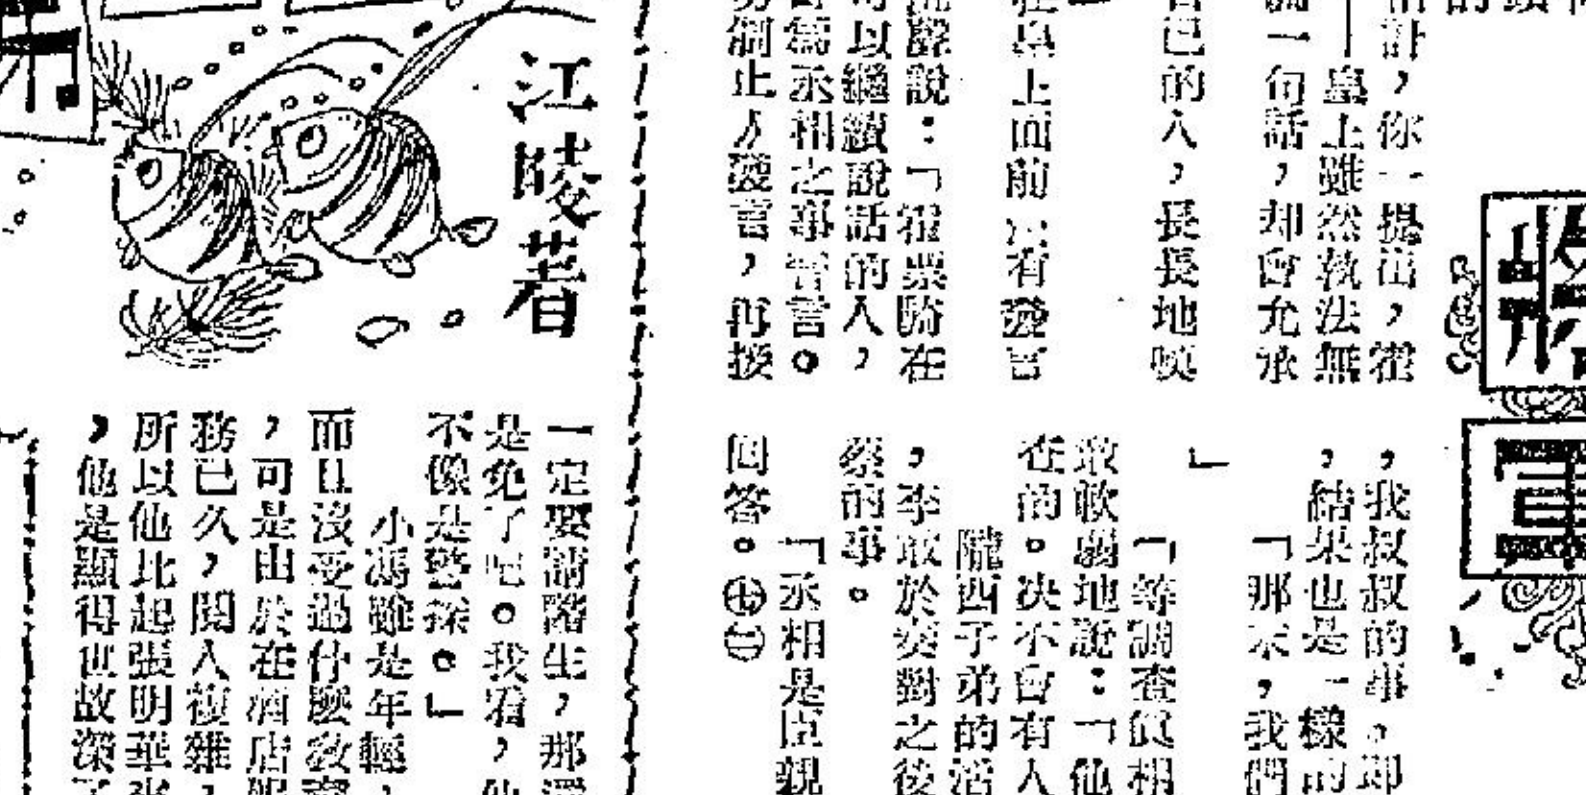 計，你一提出，霍
——皇上雖然執法無
一句話，却會允承
的人，長長地嘆
皇上面前只有發言
說：「報票騎在
可以繼續說話的人，
丞相之事害言。
止人發言，再接
將軍
，我叔叔的事。即
，結果也是一樣的
「那末，我們
」
「等調查眞相
敢軟弱地說：「他
在的。决不會有人
隴西子弟的活
，李敢於奏對之後
蔡的事。
「丞相是臣親
回答。㊉㊁
江陵著
一定要請陪生，那還
是免了吧。我看，他
不像是警探。」
小馮雖是年輕，
而且沒受過什麽敎育
，可是由於在酒店服
務已久，閱人複雜，
所以他比起張明華來
，他是顯得世故深了